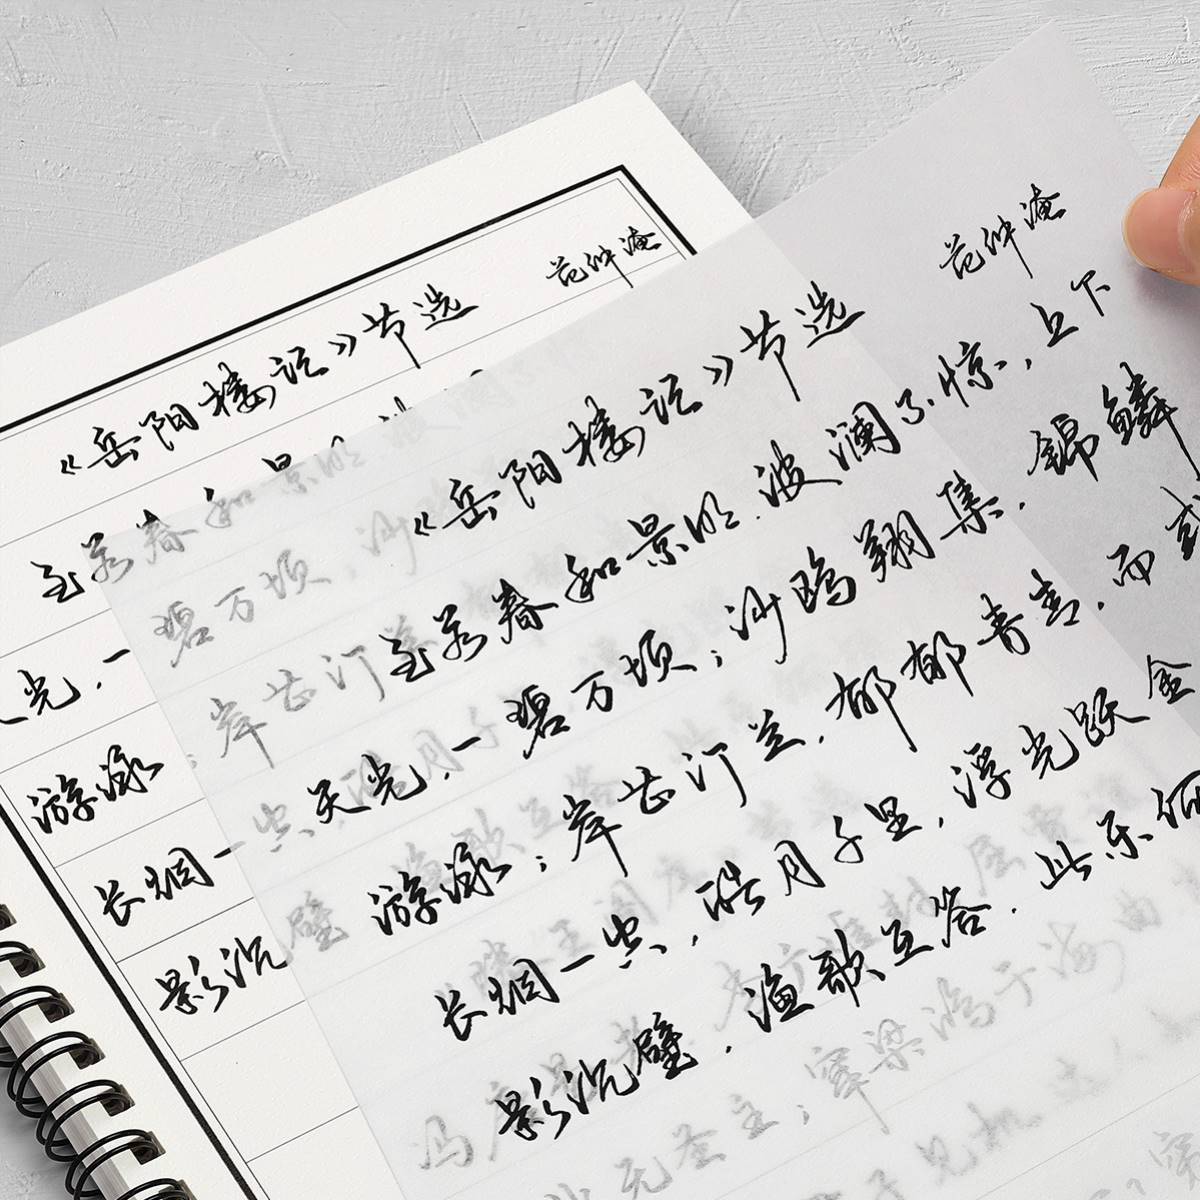 《岳阳楼记》节选
范仲淹
至若春和景明,波澜不惊,上下
天光,一碧万顷;沙鸥翔集,锦鳞
游泳;岸芷汀兰,郁郁青青。而或
长烟一空,皓月千里,浮光跃金
影沉璧,渔歌互答,此乐何
《岳阳楼记》节选
范仲淹
至若春和景明
光,一碧万顷;沙
游泳;岸芷汀兰
长烟一空,皓月千
影沉璧